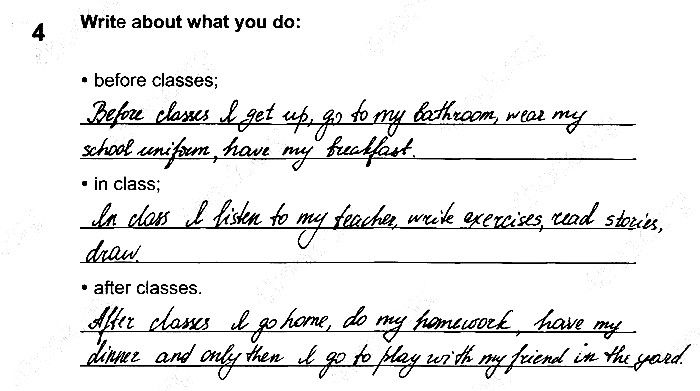 4
Write about what you do:
• before classes;
Before classes I get up, go to my bathroom, wear my
school uniform, have my breakfast.
• in class;
In class I listen to my teacher, write exercises, read stories,
draw.
• after classes.
After classes I go home, do my homework, have my
dinner and only then I go to play with my friend in the yard.